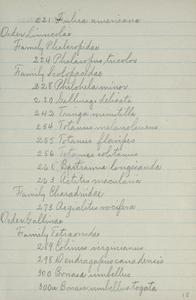 221 Fulica americana
Order Limicolae
Family Phalaropidae
224 Phalaropus tricolor
Family Scolopacidae
228 Philohela minor
230 Gallinago delicata
242 Tringa minutilla
254 Totanus melanoleucus
255 Totanus flavipes
256 Totanus solitarius
261 Bartramia longicauda
263 Actitis macularia
Family Charadriidae
273 Aegialitis vocifera
Order Gallinae
Family Tetraonidae
289 Colinus virginianus
298 Dendragapus canadensis
300 Bonasa umbellus
300a Bonasa umbellus togata